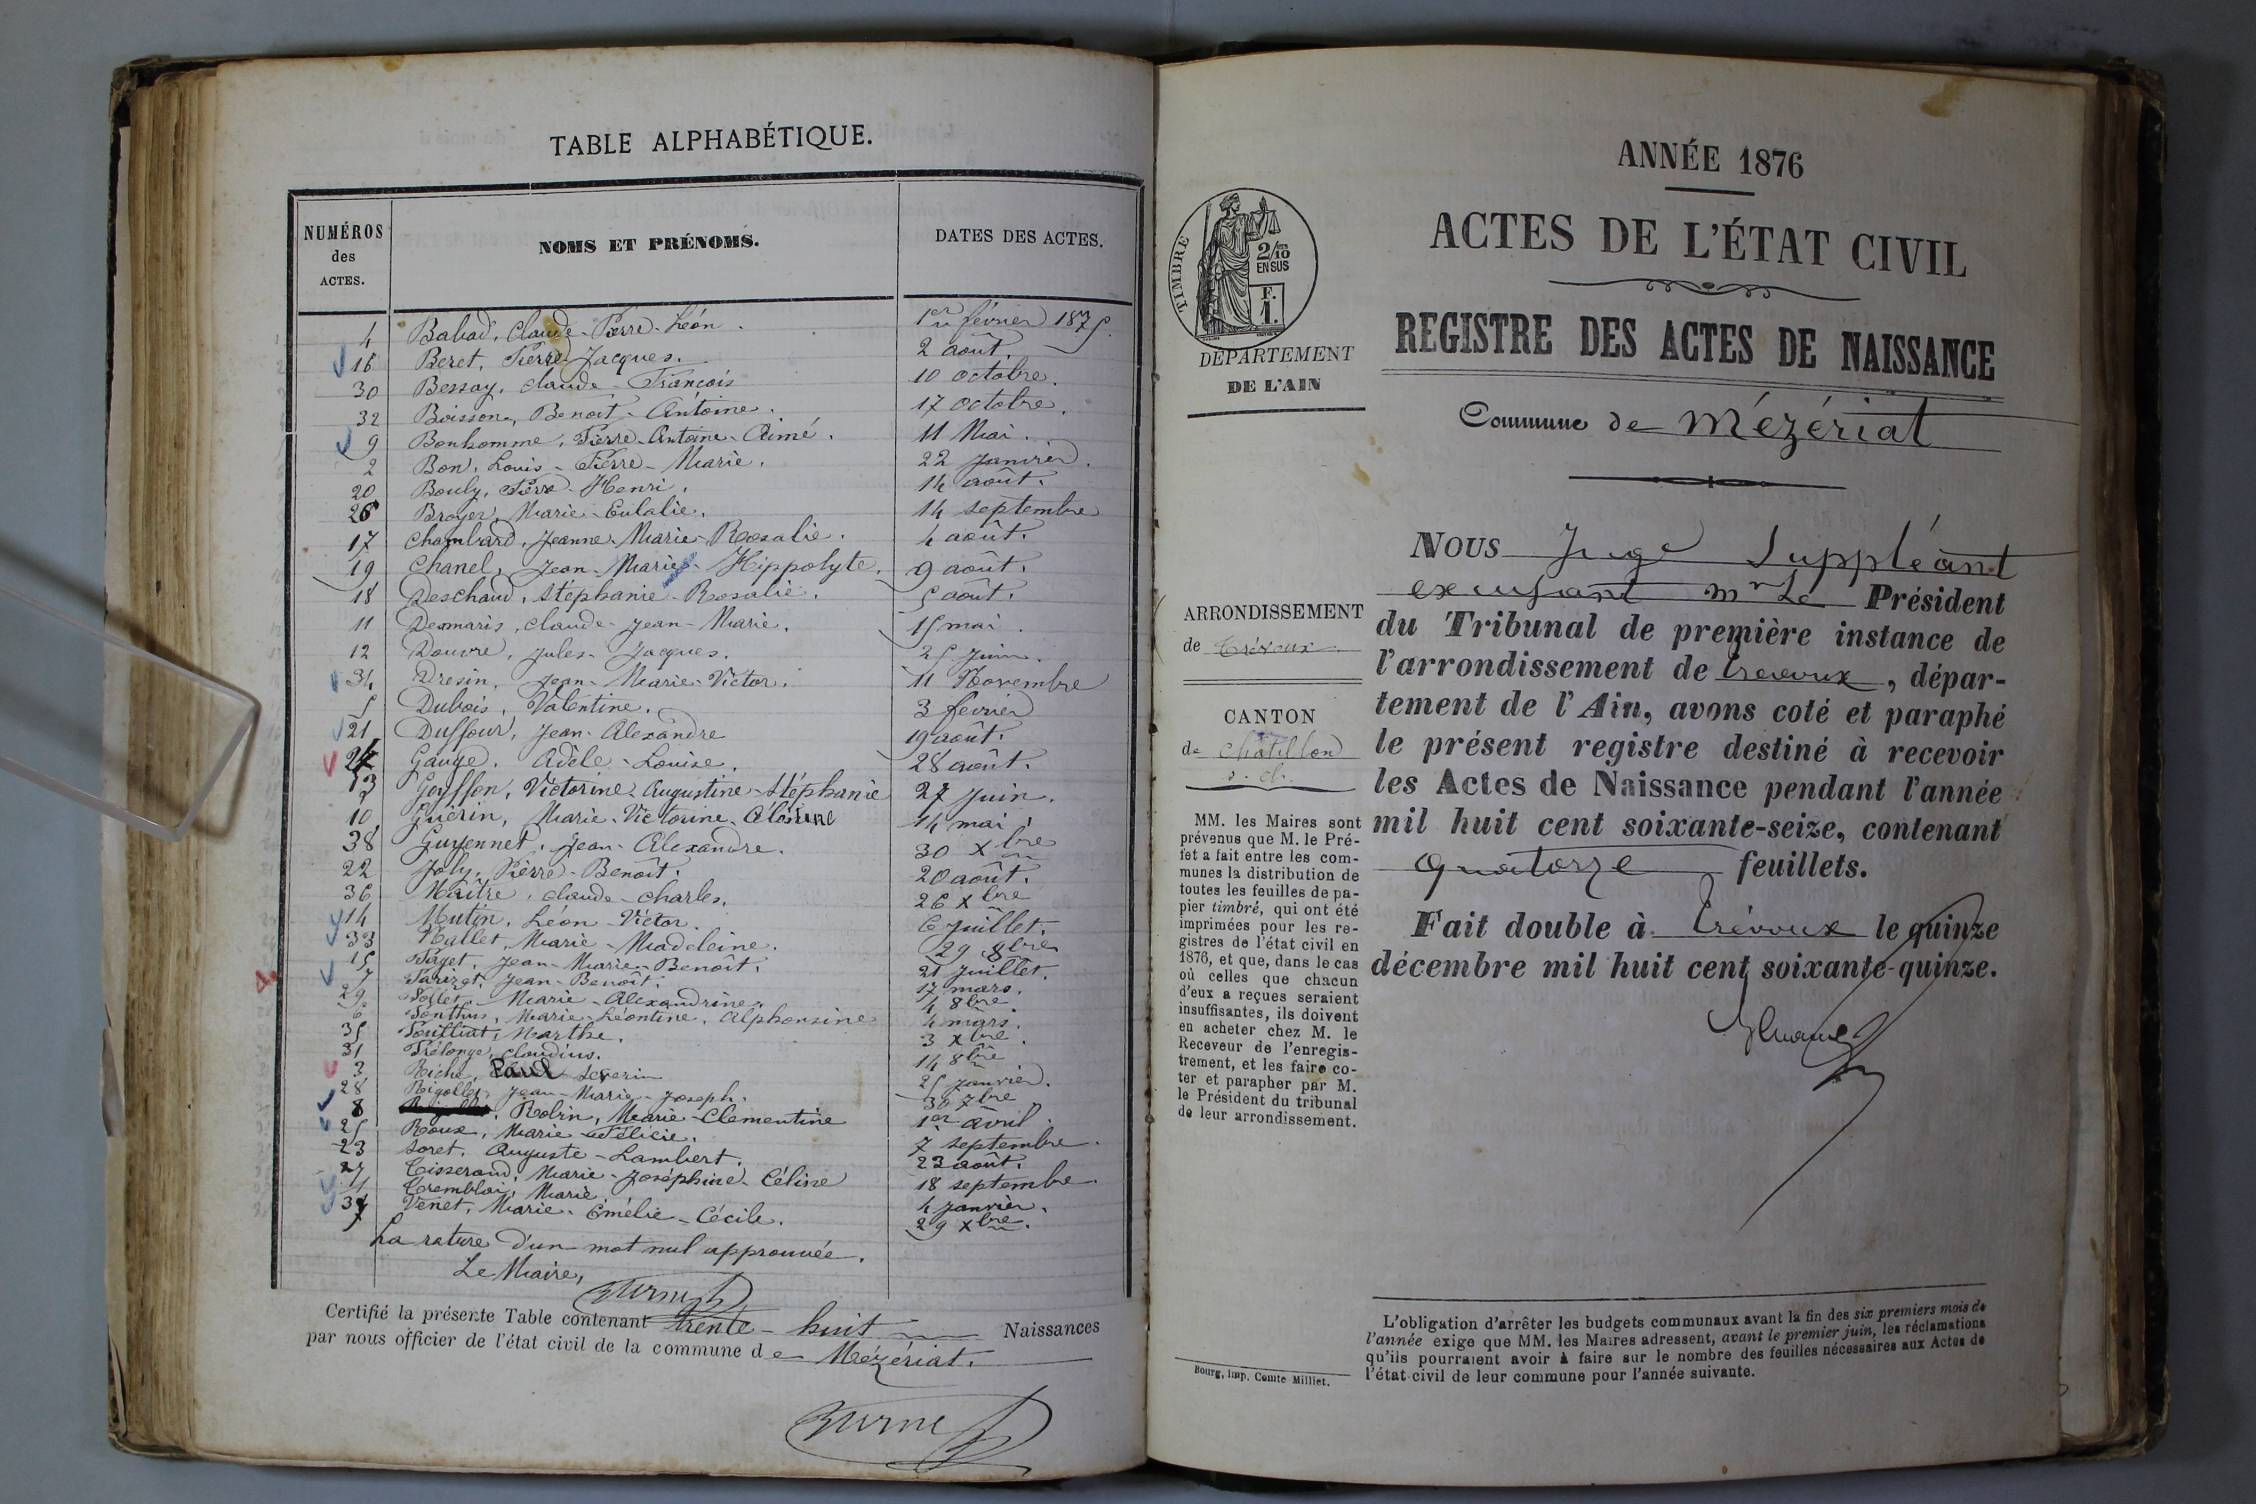 TABLE ALPHABÉTIQUE.
NUMÉROS des ACTES. NOMS ET PRÉNOMS. DATES DES ACTES.
4 Babad, Claude-Pierre-Léon. 1er février 1875.
16 Beret, Pierre-Jacques. 2 août.
30 Bessay, Claude-François 10 octobre.
32 Boisson, Benoît-Antoine. 17 octobre.
9 Bonhomme, Pierre-Antoine-Aimé. 11 Mai.
2 Bon, Louis-Pierre-Marie. 22 janvier.
20 Bouly, Pierre-Henri. 14 août.
26 Broyer, Marie-Eulalie. 14 septembre
17 Chambard, Jeanne-Marie-Rosalie. 4 août.
19 Chanel, Jean-Marie-Hippolyte. 9 août.
18 Deschaud, Stéphanie-Rosalie. 5 août.
11 Demaris, Claude-Jean-Marie. 15 mai.
12 Douvre, Jules-Jacques. 25 juin.
34 Dresin, Jean-Marie-Victor. 11 Novembre
5 Dubois, Valentine. 3 février
21 Duffour, Jean-Alexandre 19 août.
24 Gauge, Adèle-Louise. 28 août.
13 Goyffon, Victorine-Augustine-Stéphanie 27 juin.
10 Guérin, Marie-Victorine- 14 mai.
38 Guyennet, Jean-Alexandre. 30 xbre
22 Joly, Pierre-Benoît. 20 août.
36 Maître, Claude-Charles. 26 xbre
14 Mutin, Léon-Victor. 6 juillet.
33 Nallet, Marie-Madeleine. 29 8bre
15 Paget, Jean-Marie-Benoît. 21 juillet.
7 Parizot, Jean-Benoît. 17 mars.
29 Pollet, Marie-Alexandrine. 4 8bre
6 Ponthus, Marie-Léontine, Alphonsine 4 mars.
35 Pouilliat, Marthe. 3 xbre.
31 Prélonge, Claudius. 14 8bre
3 Riche, Paul Séverin 25 janvier.
28 Rigollet, Jean-Marie-Joseph. 30 7bre
8 Robin, Marie-Clementine 1er avril.
25 Roux, Marie-Félicie. 7 septembre.
23 Soret, Auguste-Lambert. 23 août.
27 Tisserand, Marie-Joséphine-Céline 18 septembre.
1 Tremblai, Marie 4 janvier.
37 Venet, Marie-Émélie-Cécile. 29 xbre.
La rature d'un mot nul approuvée.
Le Maire,
Certifié la présente Table contenant trente-huit Naissances
par nous officier de l'état civil de la commune de Mézériat.
ANNÉE 1876
ACTES DE L'ÉTAT CIVIL
REGISTRE DES ACTES DE NAISSANCE
Commune de Mézériat
TIMBRE
2/10
EN SUS
F.
1.
DÉPARTEMENT
DE L'AIN
ARRONDISSEMENT
de Trévoux
CANTON
de Châtillon
s. ch.
MM. les Maires sont
prévenus que M. le Pré-
fet a fait entre les com-
munes la distribution de
toutes les feuilles de pa-
pier timbré, qui ont été
imprimées pour les re-
gistres de l'état civil en
1876, et que, dans le cas
où celles que chacun
d'eux a reçues seraient
insuffisantes, ils doivent
en acheter chez M. le
Receveur de l'enregis-
trement, et les faire co-
ter et parapher par M.
le Président du tribunal
de leur arrondissement.
Bourg, imp. Comte-Milliet.
NOUS Juge Suppléant
excusant Mr Le Président
du Tribunal de première instance de
l'arrondissement de Trevoux, dépar-
tement de l'Ain, avons coté et paraphé
le présent registre destiné à recevoir
les Actes de Naissance pendant l'année
mil huit cent soixante-seize, contenant
quatorze feuillets.
Fait double à Trévoux le quinze
décembre mil huit cent soixante-quinze.
L'obligation d'arrêter les budgets communaux avant la fin des six premiers mois de
l'année exige que MM. les Maires adressent, avant le premier juin, les réclamations
qu'ils pourraient avoir à faire sur le nombre des feuilles nécessaires aux Actes de
l'état civil de leur commune pour l'année suivante.